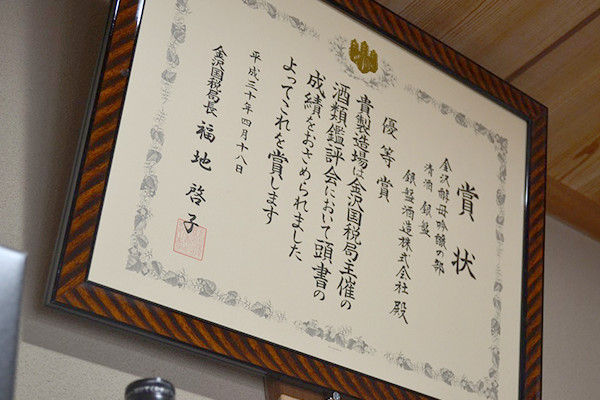 賞状
金沢酵母吟醸の部
清酒 銀盤
銀盤酒造株式会社 殿
優等賞
貴製造場は金沢国税局主催の
酒類鑑評会において頭書の
成績をおさめられました
よってこれを賞します
平成三十年四月十八日
金沢国税局長 福地啓子